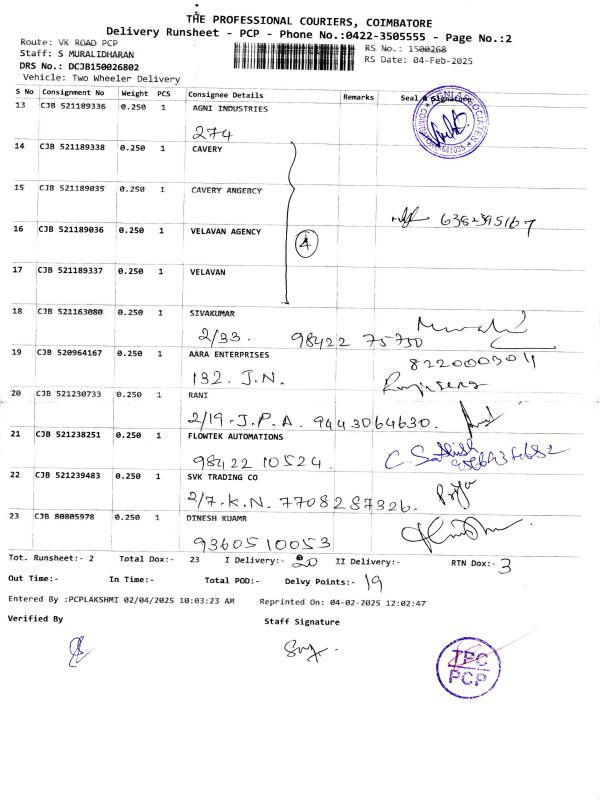 THE PROFESSIONAL COURIERS, COIMBATORE
Delivery Runsheet - PCP - Phone No.:0422-3505555 - Page No.:2
Route: VK ROAD PCP
RS No.: 1500268
Staff: S MURALIDHARAN
RS Date: 04-Feb-2025
DRS No.: DCJB150026802
Vehicle: Two Wheeler Delivery
S No Consignment No Weight PCS Consignee Details Remarks Seal & Signature
13 CJB 521189336 0.250 1 AGNI INDUSTRIES
274
14 CJB 521189338 0.250 1 CAVERY
15 CJB 521189035 0.250 1 CAVERY ANGEBCY
6382395167
16 CJB 521189036 0.250 1 VELAVAN AGENCY
4
17 CJB 521189337 0.250 1 VELAVAN
18 CJB 521163080 0.250 1 SIVAKUMAR
2/33. 98422 75750
19 CJB 520964167 0.250 1 AARA ENTERPRISES
8220003011
132. J.N.
20 CJB 521230733 0.250 1 RANI
2/19.J.P.A. 9443064630.
21 CJB 521238251 0.250 1 FLOWTEK AUTOMATIONS
98422 10524
22 CJB 521239483 0.250 1 SVK TRADING CO
2/7.K.N. 7708287326.
23 CJB 80805978 0.250 1 DINESH KUAMR
9360510053
Tot. Runsheet:- 2 Total Dox:- 23 I Delivery:- 20 II Delivery:- RTN Dox:- 3
Out Time:- In Time:- Total POD:- Delvy Points:- 19
Entered By :PCPLAKSHMI 02/04/2025 10:03:23 AM Reprinted On: 04-02-2025 12:02:47
Verified By
Staff Signature
TPC
PCP